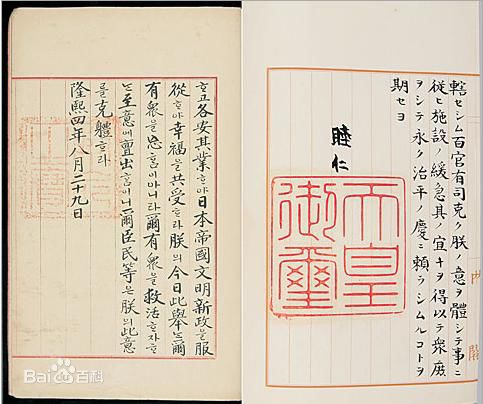 轄セシム百官有司克ク朕ノ意ヲ體シテ事ニ
從ヒ施設ノ緩急其ノ宜キヲ得以テ衆庶
ヲシテ永ク治平ノ慶ニ頼ラシムルコトヲ
期セヨ
睦仁
天皇
御璽
内閣
ᄒᆞ고各安其業ᄒᆞ야日本帝國文明新政을服
從ᄒᆞ야幸福을共受ᄒᆞ라朕의今日此擧ᄂᆞᆫ爾
有衆을忘홈이아니라爾有衆을救活ᄒᆞ자ᄒᆞ
ᄂᆞᆫ至意에亶出홈이니爾臣民等은朕의此意
를克體ᄒᆞ라
隆熙四年八月二十九日
Bai百科